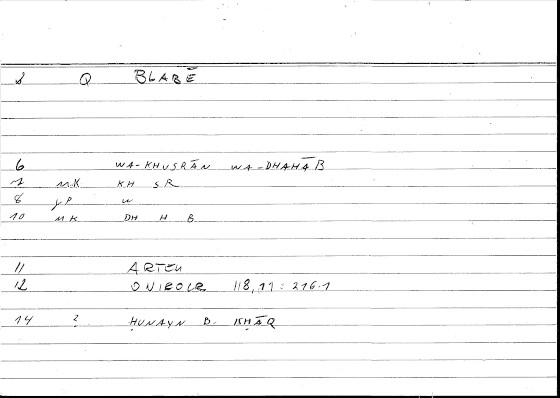 8 Q BLABĒ
6 WA-KHUSRĀN WA-DHAHĀB
7 MK KH S R
8 JP W
10 MK DH H B
11 ARTEM
12 ONIROCR 118,11: 216.1
14 ? ḤUNAYN B. ISḤĀQ